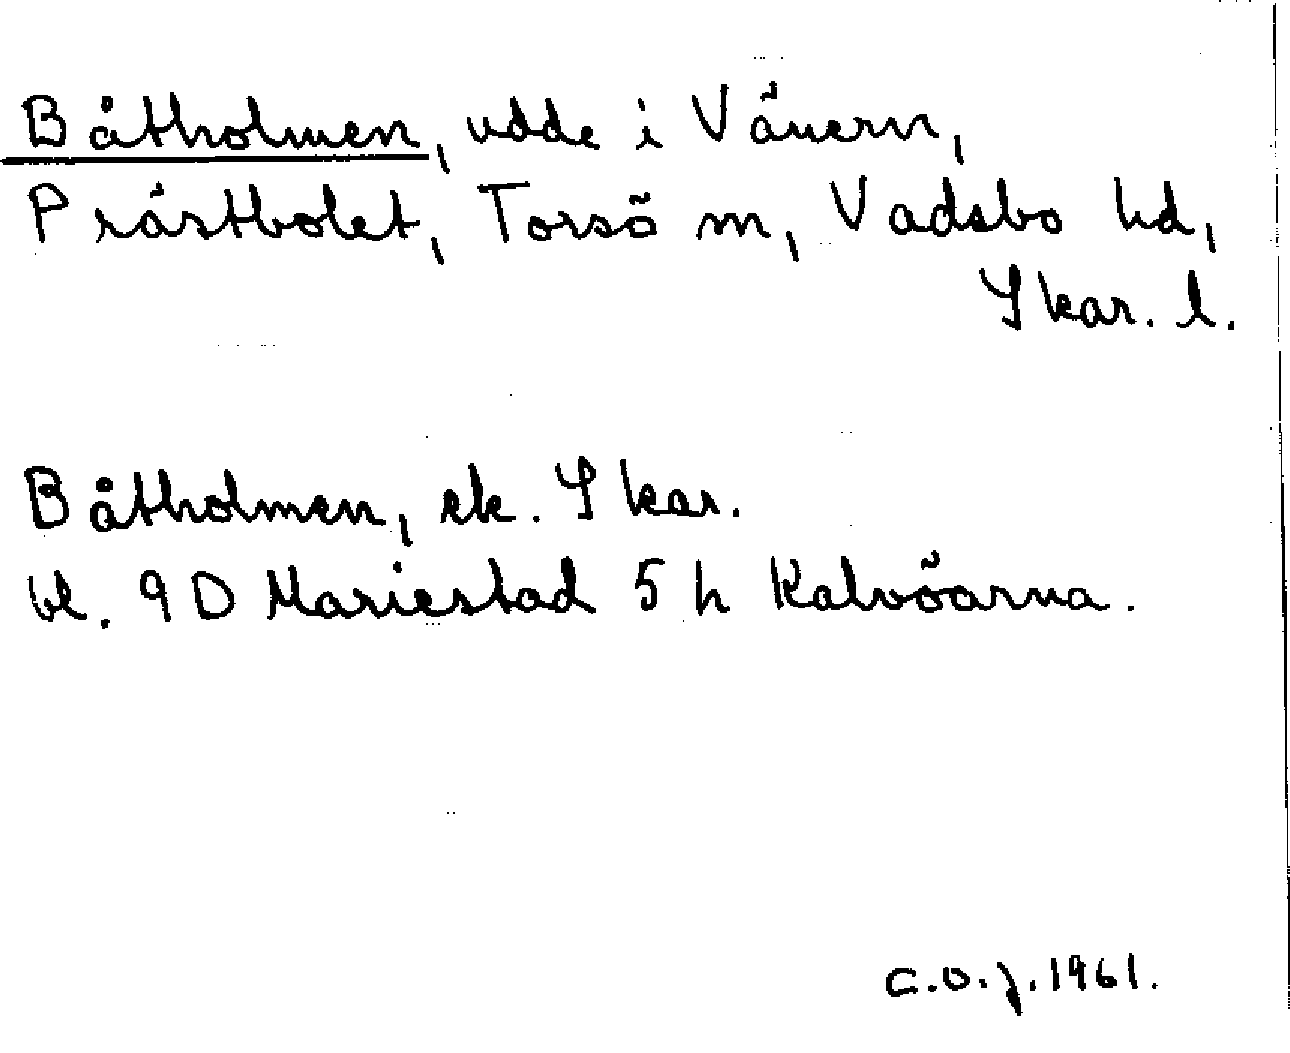 Båtholmen, udde i Vänern,
Prästbolet, Torsö sn, Vadsbo hd,
Skar. l.
Båtholmen, ek. Skar.
bl. 9D Mariestad 5 h Kalvöarna.
C.O.J. 1961.